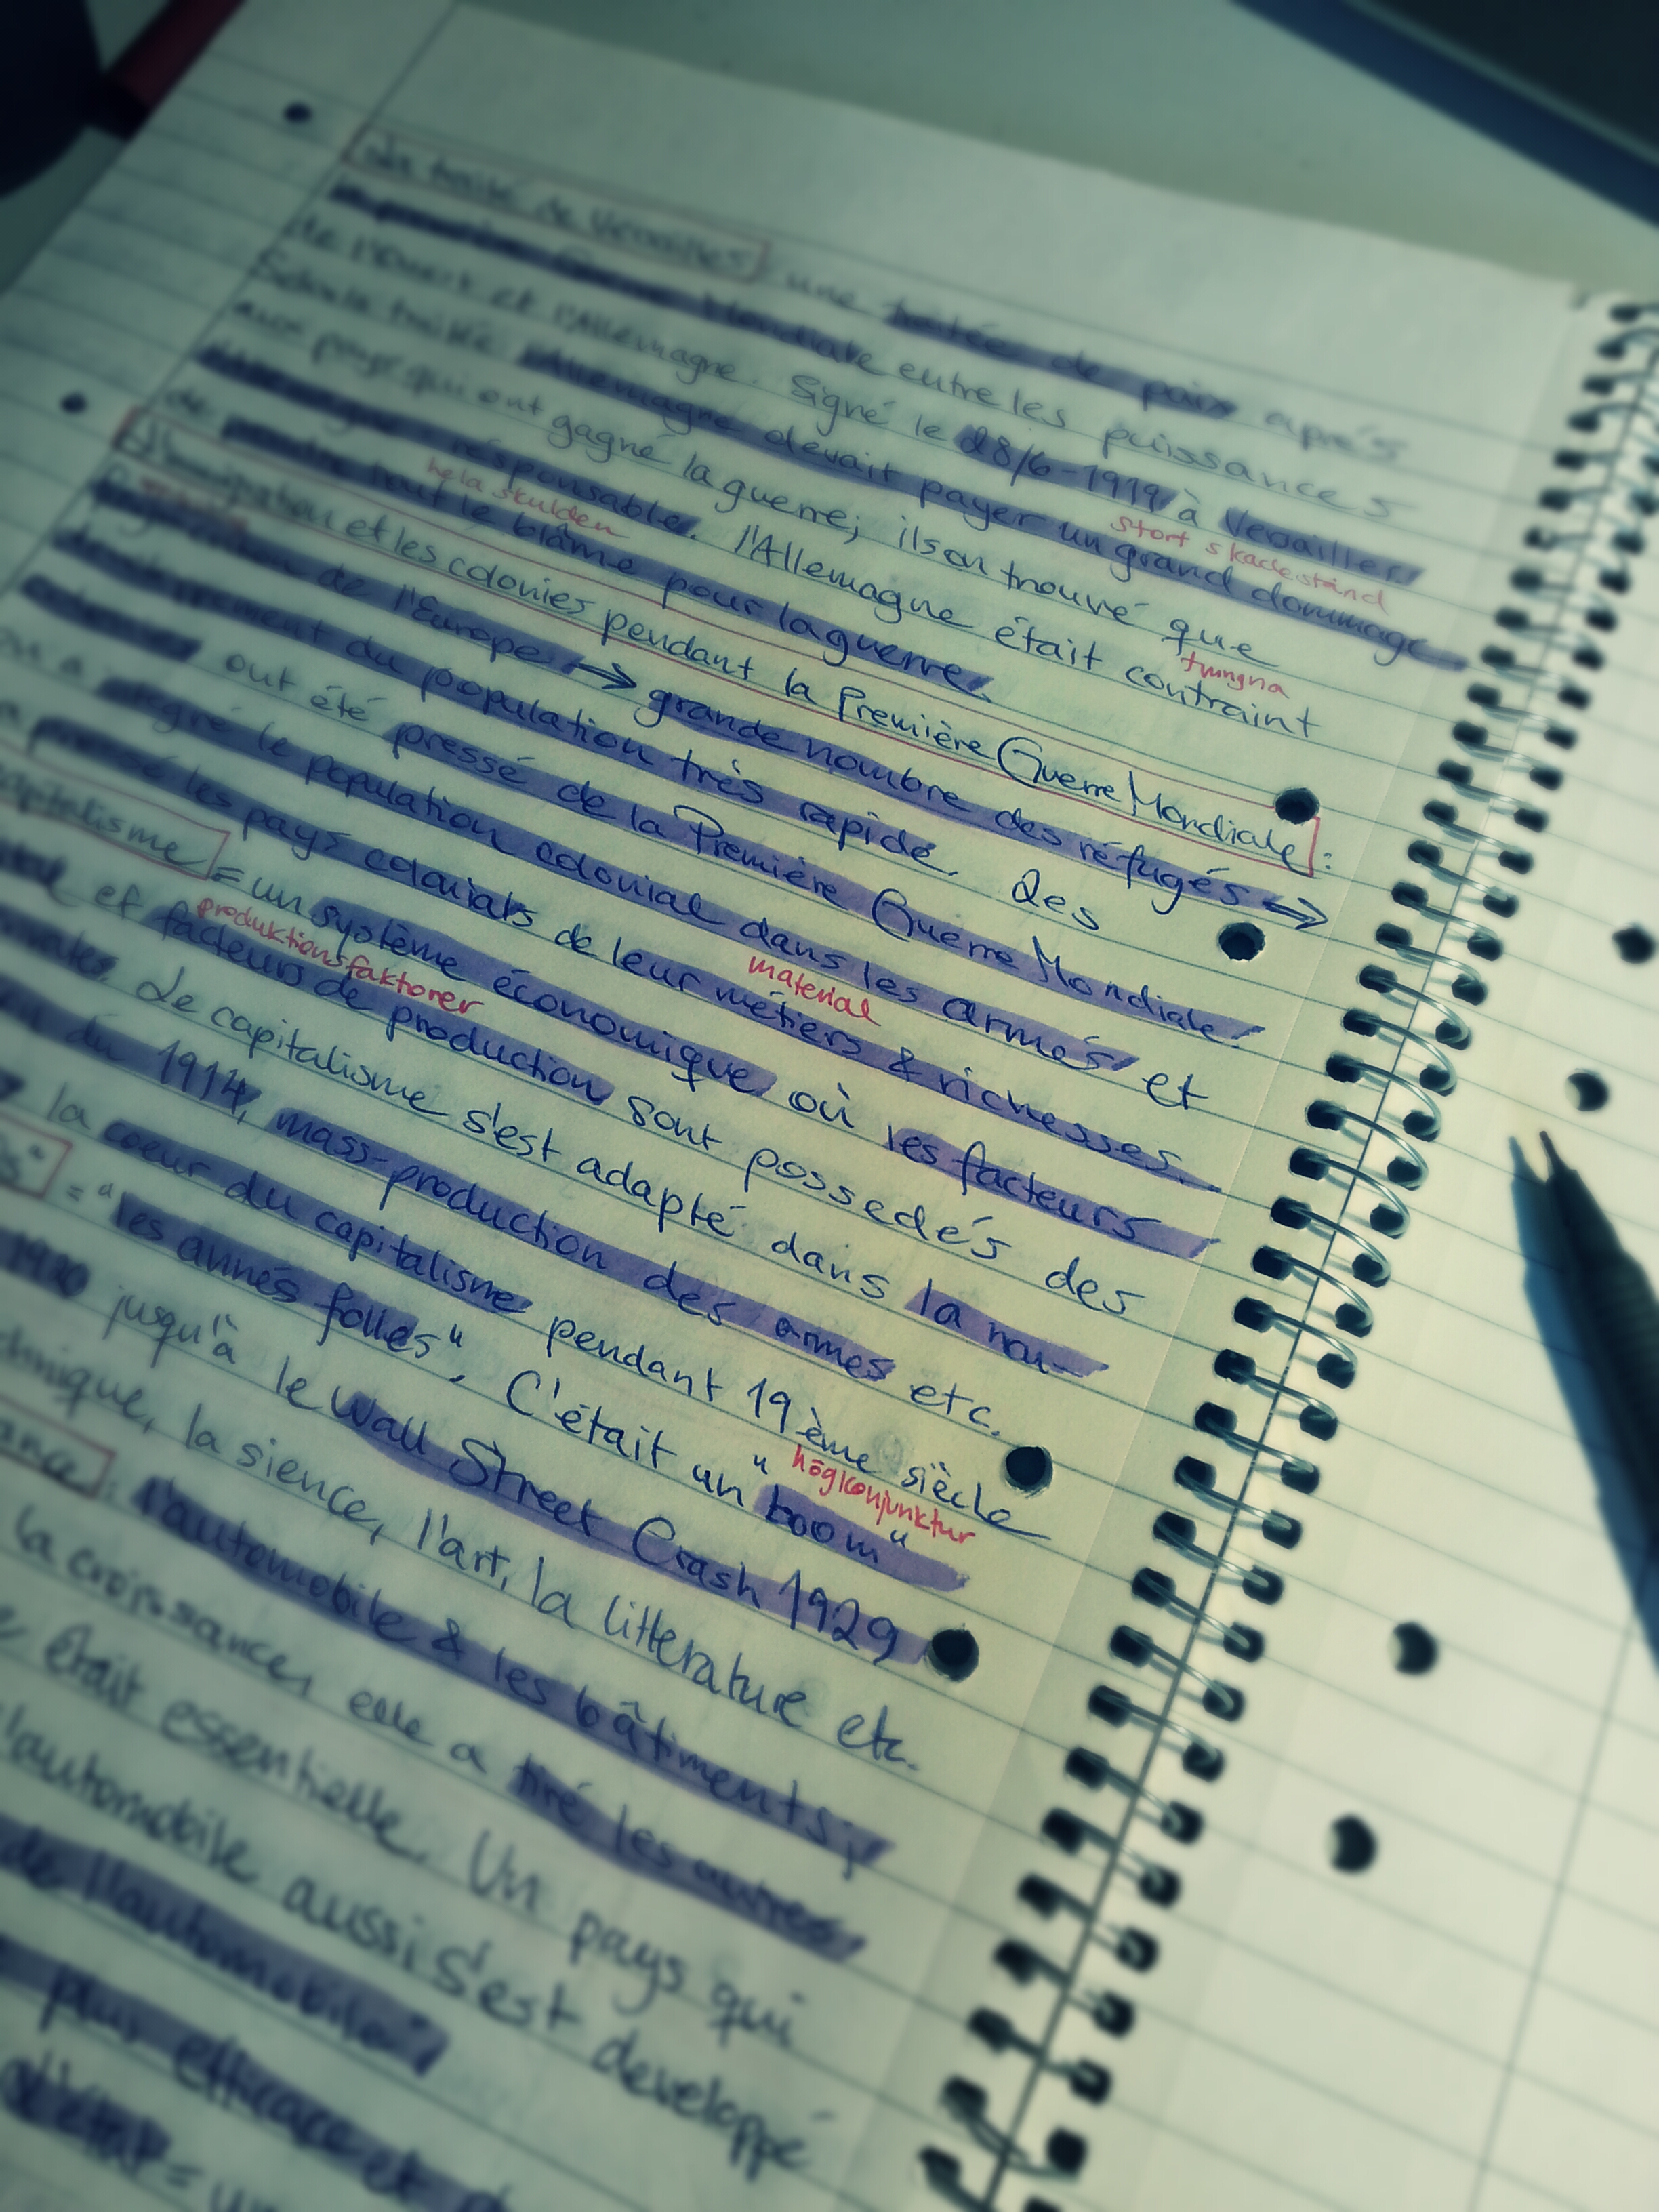 La traité de Versailles: une traitée de paix après
la première Guerre Mondiale entre les puissances
de l'Ouest et l'Allemagne. Signé le 28/6-1919 à Versailles.
stort skadestånd
Selon la traitée Allemagne devait payer un grand dommage
aux pays qui ont gagné la guerre; ils on trouvé que
tvingna
responsable. l'Allemagne était contraint
hela skulden
de prendre tout le blâme pour la guerre.
et les colonies pendant la Première Guerre Mondiale:
de l'Europe ⇒ grande nombre des réfugés ⇒
du population très rapide. Les
ont été pressé de la Première Guerre Mondiale
integré le population colonial dans les armés et
material
pressé les pays coloniats de leur métiers & richesses.
capitalisme = un système économique où les facteurs
produktionsfaktorer
et facteurs de production sont possedés des
Le capitalisme s'est adapté dans la nou-
du 1914, mass-production des armes etc.
la coeur du capitalisme pendant 19ème siècle
högkonjunktur
= "les annés folles". C'était un "boom"
1920 jusqu'à le Wall Street Crash 1929
la sience, l'art, la litterature etc.
l'automobile & les bâtiments;
la croissance, elle a tiré les autres
était essentielle. Un pays qui
l'automobile aussi s'est developpé
de l'automobile
plus efficace et
d'état = un